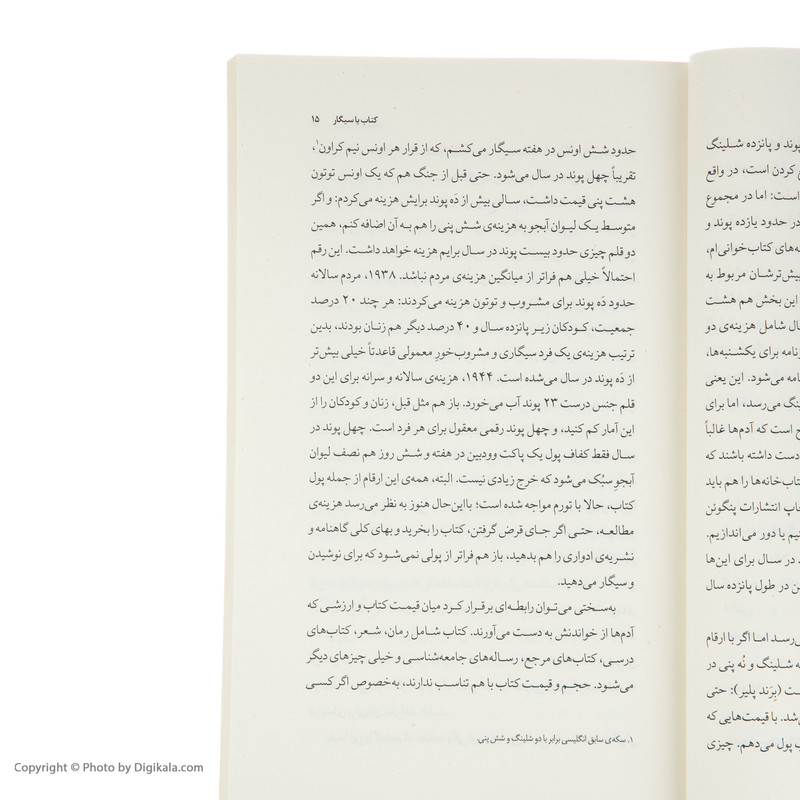 کتاب یا سیگار ۱۵
حدود شش اونس در هفته سیگار می‌کشم، که از قرار هر اونس نیم کراون۱،
تقریباً چهل پوند در سال می‌شود. حتی قبل از جنگ هم که یک اونس توتون
هشت پنی قیمت داشت، سالی بیش از دَه پوند برایش هزینه می‌کردم: و اگر
متوسط یک لیوان آبجو به هزینه‌ی شش پنی را هم به آن اضافه کنم، همین
دو قلم چیزی حدود بیست پوند در سال برایم هزینه خواهد داشت. این رقم
احتمالاً خیلی هم فراتر از میانگین هزینه‌ی مردم نباشد. ۱۹۳۸، مردم سالانه
حدود دَه پوند برای مشروب و توتون هزینه می‌کردند: هر چند ۲۰ درصد
جمعیت، کودکان زیر پانزده سال و ۴۰ درصد دیگر هم زنان بودند، بدین
ترتیب هزینه‌ی یک فرد سیگاری و مشروب‌خورِ معمولی قاعدتاً خیلی بیش‌تر
از دَه پوند در سال می‌شده است. ۱۹۴۴، هزینه‌ی سالانه و سرانه برای این دو
قلم جنس درست ۲۳ پوند آب می‌خورد. باز هم مثل قبل، زنان و کودکان را از
این آمار کم کنید، و چهل پوند رقمی معقول برای هر فرد است. چهل پوند در
سال فقط کفاف پول یک پاکت وودبین در هفته و شش روز هم نصف لیوان
آبجوِ سبُک می‌شود که خرج زیادی نیست. البته، همه‌ی این ارقام از جمله پول
کتاب، حالا با تورم مواجه شده است؛ بااین‌حال هنوز به نظر می‌رسد هزینه‌ی
مطالعه، حتی اگر جای قرض گرفتن، کتاب را بخرید و بهای کلی گاهنامه و
نشریه‌ی ادواری را هم بدهید، باز هم فراتر از پولی نمی‌شود که برای نوشیدن
و سیگار می‌دهید.
به‌سختی می‌توان رابطه‌ای برقرار کرد میان قیمت کتاب و ارزشی که
آدم‌ها از خواندنش به دست می‌آورند. کتاب شامل رمان، شعر، کتاب‌های
درسی، کتاب‌های مرجع، رساله‌های جامعه‌شناسی و خیلی چیزهای دیگر
می‌شود. حجم و قیمت کتاب با هم تناسب ندارند، به‌خصوص اگر کسی
۱. سکه‌ی سابق انگلیسی برابر با دو شلینگ و شش پنی.
پوند و پانزده شلینگ
کردن است، در واقع
است: اما در مجموع
در حدود یازده پوند و
های کتاب‌خوانی‌ام،
بیش‌ترشان مربوط به
این بخش هم هشت
شامل هزینه‌ی دو
برای یکشنبه‌ها،
می‌شود. این یعنی
می‌رسد، اما برای
است که آدم‌ها غالباً
دست داشته باشند که
را هم باید
انتشارات پنگوئن
یا دور می‌اندازیم.
در سال برای این‌ها
در طول پانزده سال
اما اگر با ارقام
شلینگ و نُه پنی در
(بِرَند پلیر): حتی
با قیمت‌هایی که
پول می‌دهم. چیزی
Copyright © Photo by Digikala.com